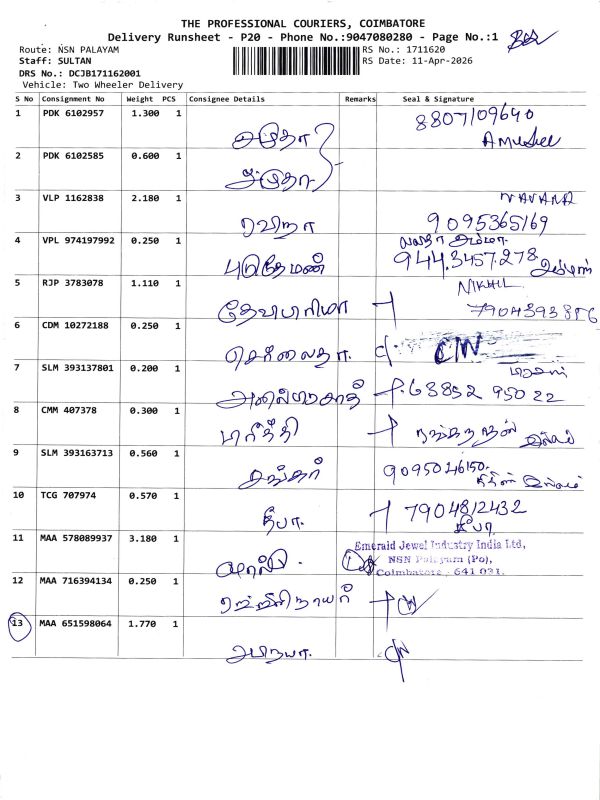 THE PROFESSIONAL COURIERS, COIMBATORE
Delivery Runsheet - P20 - Phone No.:9047080280 - Page No.:1
Route: NSN PALAYAM RS No.: 1711620
Staff: SULTAN RS Date: 11-Apr-2026
DRS No.: DCJB171162001
Vehicle: Two Wheeler Delivery
S No Consignment No Weight PCS Consignee Details Remarks Seal & Signature
1 PDK 6102957 1.300 1 அமுதா 8807109640
2 PDK 6102585 0.600 1 அமுதா
3 VLP 1162838 2.180 1 ரவிநா 9095365169
4 VPL 974197992 0.250 1 944.3457.278
5 RJP 3783078 1.110 1 NIKHIL
7904393886
6 CDM 10272188 0.250 1 C/W
7 SLM 393137801 0.200 1 63852 95022
8 CMM 407378 0.300 1
9 SLM 393163713 0.560 1 சங்கர் 9095046150
10 TCG 707974 0.570 1 தீபா. 7904812432
தீபா
11 MAA 578089937 3.180 1 Emerald Jewel Industry India Ltd,
NSN Palayam (Po),
Coimbatore - 641 031.
12 MAA 716394134 0.250 1 C/W
13 MAA 651598064 1.770 1 அபிநயா. C/W